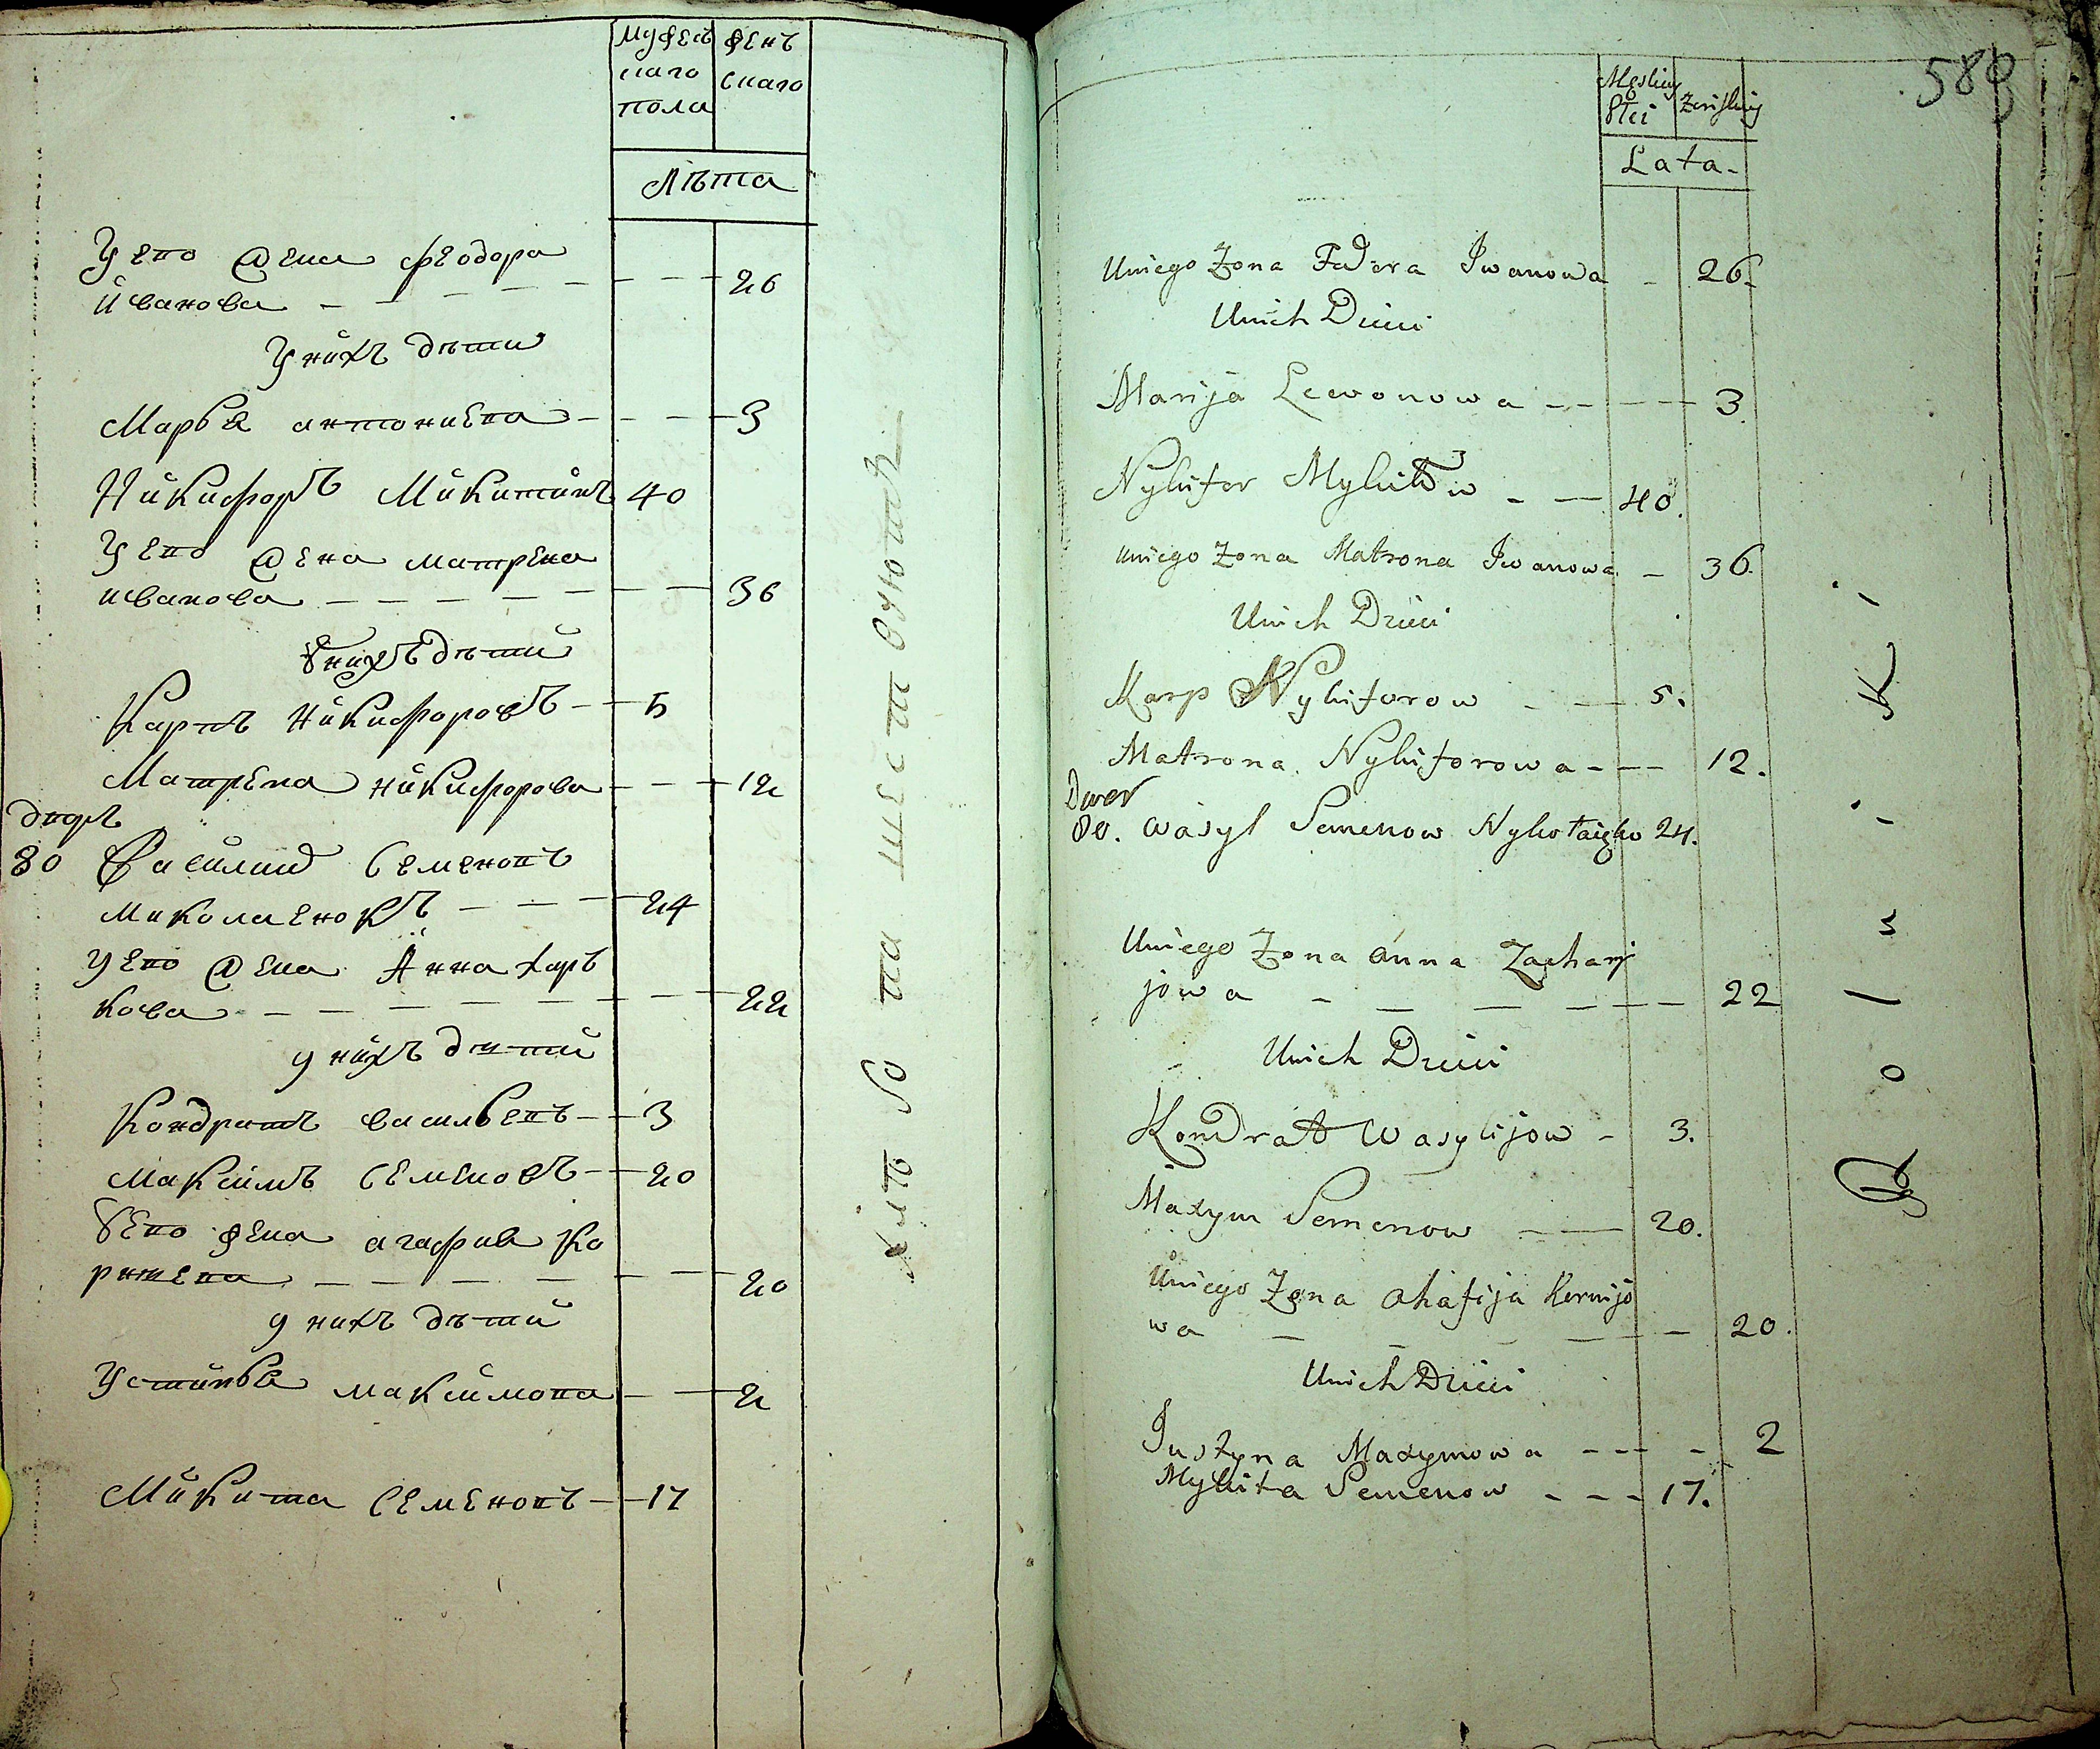 Мужеска
го
пола
Женъ
скаго
Лѣта
У его жена феодора
Иванова — — — — — 26
У нихъ дѣти
Марья антониева — — — 3
Никифоръ Микитинъ 40
У его жена матрена
иванова — — — — — 36
У нихъ дѣти
Карпъ Никифоровъ — 5
Матрена никифорова — — 12
двор
80 Василий Семеновъ
Миколаенокъ — — — 24
У его жена Анна харь
кова — — — — — 22
у нихъ дѣти
Кондратъ васильевъ — 3
Максимъ Семеновъ — 20
У его жена агафия Ко
рнѣева — — — — — 20
у нихъ дѣти
Устинья максимова — — 2
Микита Семеновъ — 17
589
Męskiey
Płci
Żeńskiey
Lata
U niego Żona Fedora Iwanowa - 26.
U nich Dzieci
Marija Lewonowa - - - - 3.
Nykifor Mykitow - — 40.
U niego Żona Matrona Iwanowa - 36
U nich Dzieci
Karp Nykiforow - — 5.
Matrona Nykiforowa - - - 12.
Dwor
80. Wasyl Semenow 24.
U niego Żona Anna Zachary
jowa - — — - — — 22
U nich Dzieci
Kondrat Wasylijow - 3.
Maxym Semenow — — 20.
U niego Żona Ahafija Kornijo
wa — - - — — 20.
U nich Dzieci
Justyna Maxymowa - - - - 2
Mykita Semenow - - - 17.